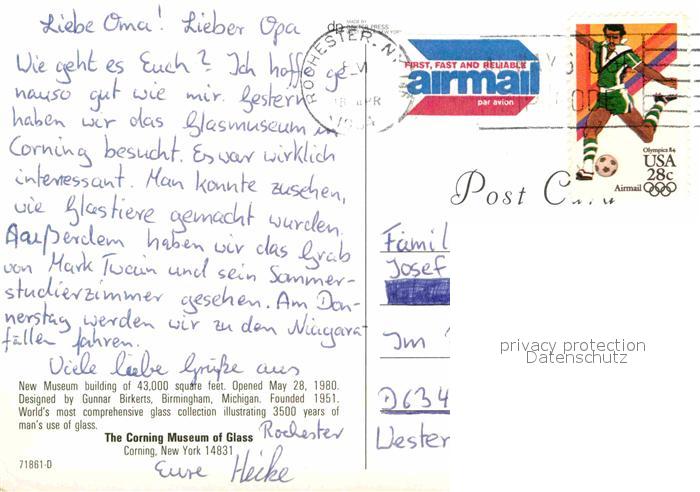 Liebe Oma! Lieber Opa
Wie geht es Euch? Ich hoffe ge-
nauso gut wie mir. Gestern
haben wir das Glasmuseum in
Corning besucht. Es war wirklich
interessant. Man konnte zusehen,
wie Glastiere gemacht wurden.
Aaußerdem haben wir das Grab
von Mark Twain und sein Sommer-
studierzimmer gesehen. Am Don-
nerstag werden wir zu den Niagara-
fällen fahren.
Viele liebe Grüße aus
Rochester
Eure Heike
New Museum building of 43,000 square feet. Opened May 28, 1980.
Designed by Gunnar Birkerts, Birmingham, Michigan. Founded 1951.
World's most comprehensive glass collection illustrating 3500 years of
man's use of glass.
The Corning Museum of Glass
Corning, New York 14831
71861-D
dp
ROCHESTER, N.
18 APR
FIRST, FAST AND RELIABLE
airmail
par avion
Olympics 84
USA
28c
Airmail
Post Card
Famil
Josef
Im
D634
Wester
privacy protection
Datenschutz